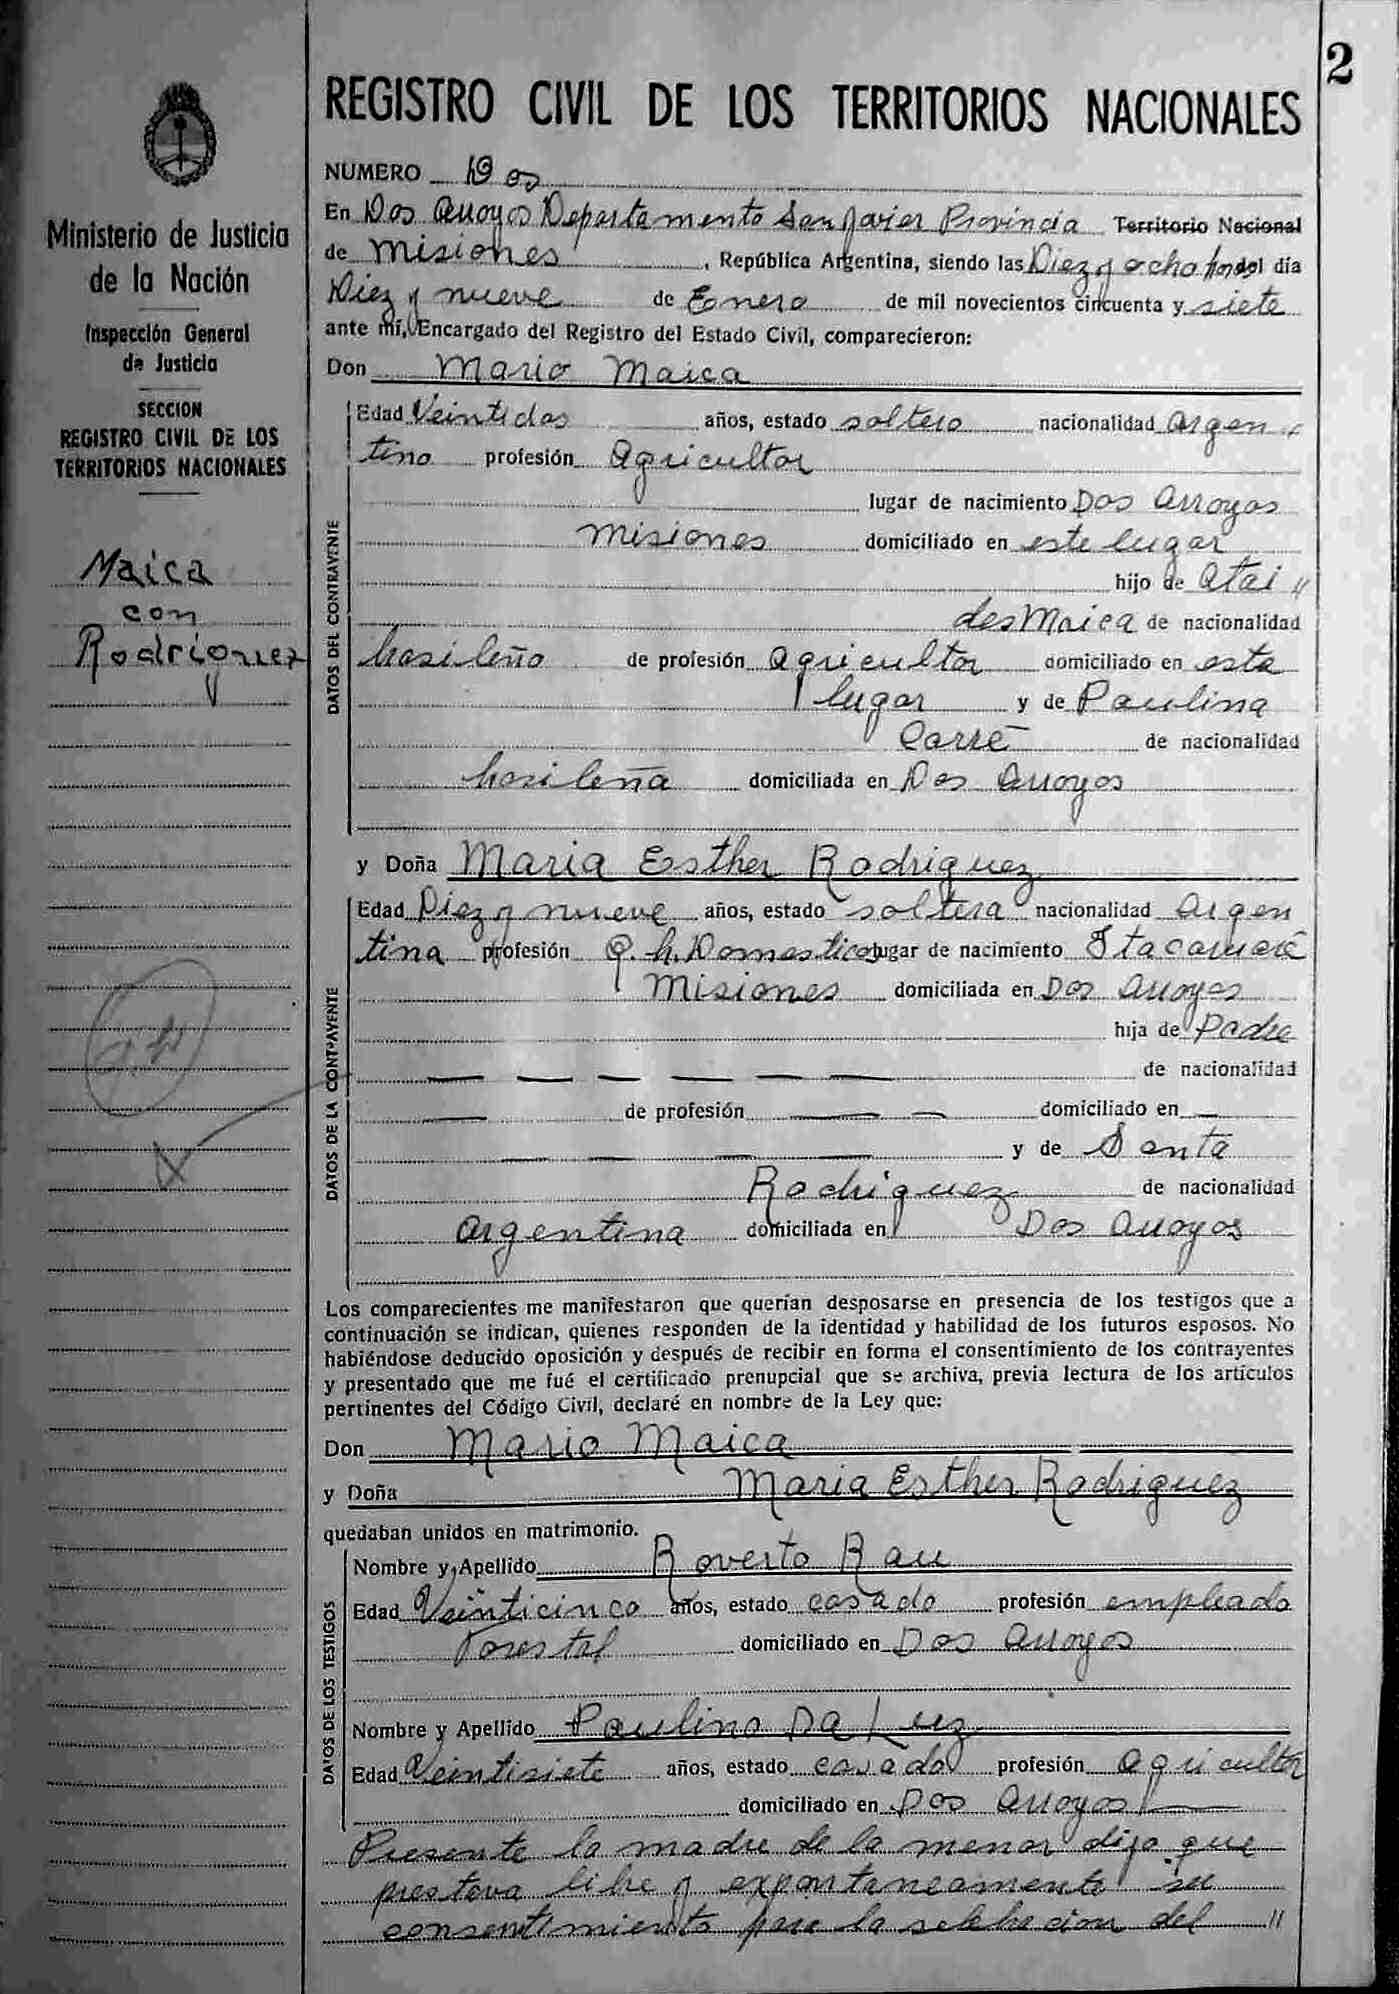 2
REGISTRO CIVIL DE LOS TERRITORIOS NACIONALES
Ministerio de Justicia
de la Nación
Inspección General
de Justicia
SECCION
REGISTRO CIVIL DE LOS
TERRITORIOS NACIONALES
Maica
con
Rodriguez
NUMERO Dos
En Dos Arroyos Departamento San Javier Provincia Territorio Nacional
de Misiones, República Argentina, siendo las Diez y ocho del día
Diez y nueve de Enero de mil novecientos cincuenta y siete
ante mí, Encargado del Registro del Estado Civil, comparecieron:
Don Mario Maica
DATOS DEL CONTRAYENTE
Edad Veintidos años, estado soltero nacionalidad Argen
tino profesión Agricultor
lugar de nacimiento Dos Arroyos
Misiones domiciliado en este lugar
hijo de Atai "
des Maica de nacionalidad
brasileño de profesión Agricultor domiciliado en este
lugar y de Paulina
Carré de nacionalidad
brasileña domiciliada en Dos Arroyos
y Doña Maria Esther Rodriguez
DATOS DE LA CONTRAYENTE
Edad Diez y nueve años, estado soltera nacionalidad Argen
tina profesión Q. h. Domesticos lugar de nacimiento Itacaruaré
Misiones domiciliada en Dos Arroyos
hija de Padre
— — — — — — de nacionalidad
— de profesión — — domiciliado en —
— — — — y de Santa
Rodriguez de nacionalidad
Argentina domiciliada en Dos Arroyos
Los comparecientes me manifestaron que querían desposarse en presencia de los testigos que a
continuación se indican, quienes responden de la identidad y habilidad de los futuros esposos. No
habiéndose deducido oposición y después de recibir en forma el consentimiento de los contrayentes
y presentado que me fué el certificado prenupcial que se archiva, previa lectura de los artículos
pertinentes del Código Civil, declaré en nombre de la Ley que:
Don Mario Maica
y Doña Maria Esther Rodriguez
quedaban unidos en matrimonio.
DATOS DE LOS TESTIGOS
Nombre y Apellido Roverto Rau
Edad Veinticinco años, estado casado profesión empleado
Forestal domiciliado en Dos Arroyos
Nombre y Apellido Paulino Da Luz
Edad Veintisiete años, estado casado profesión Agricultor
domiciliado en Dos Arroyos —
Presente la madre de la menor dijo que
prestava libre y expontaneamente su
consentimiento para la selebracion del "